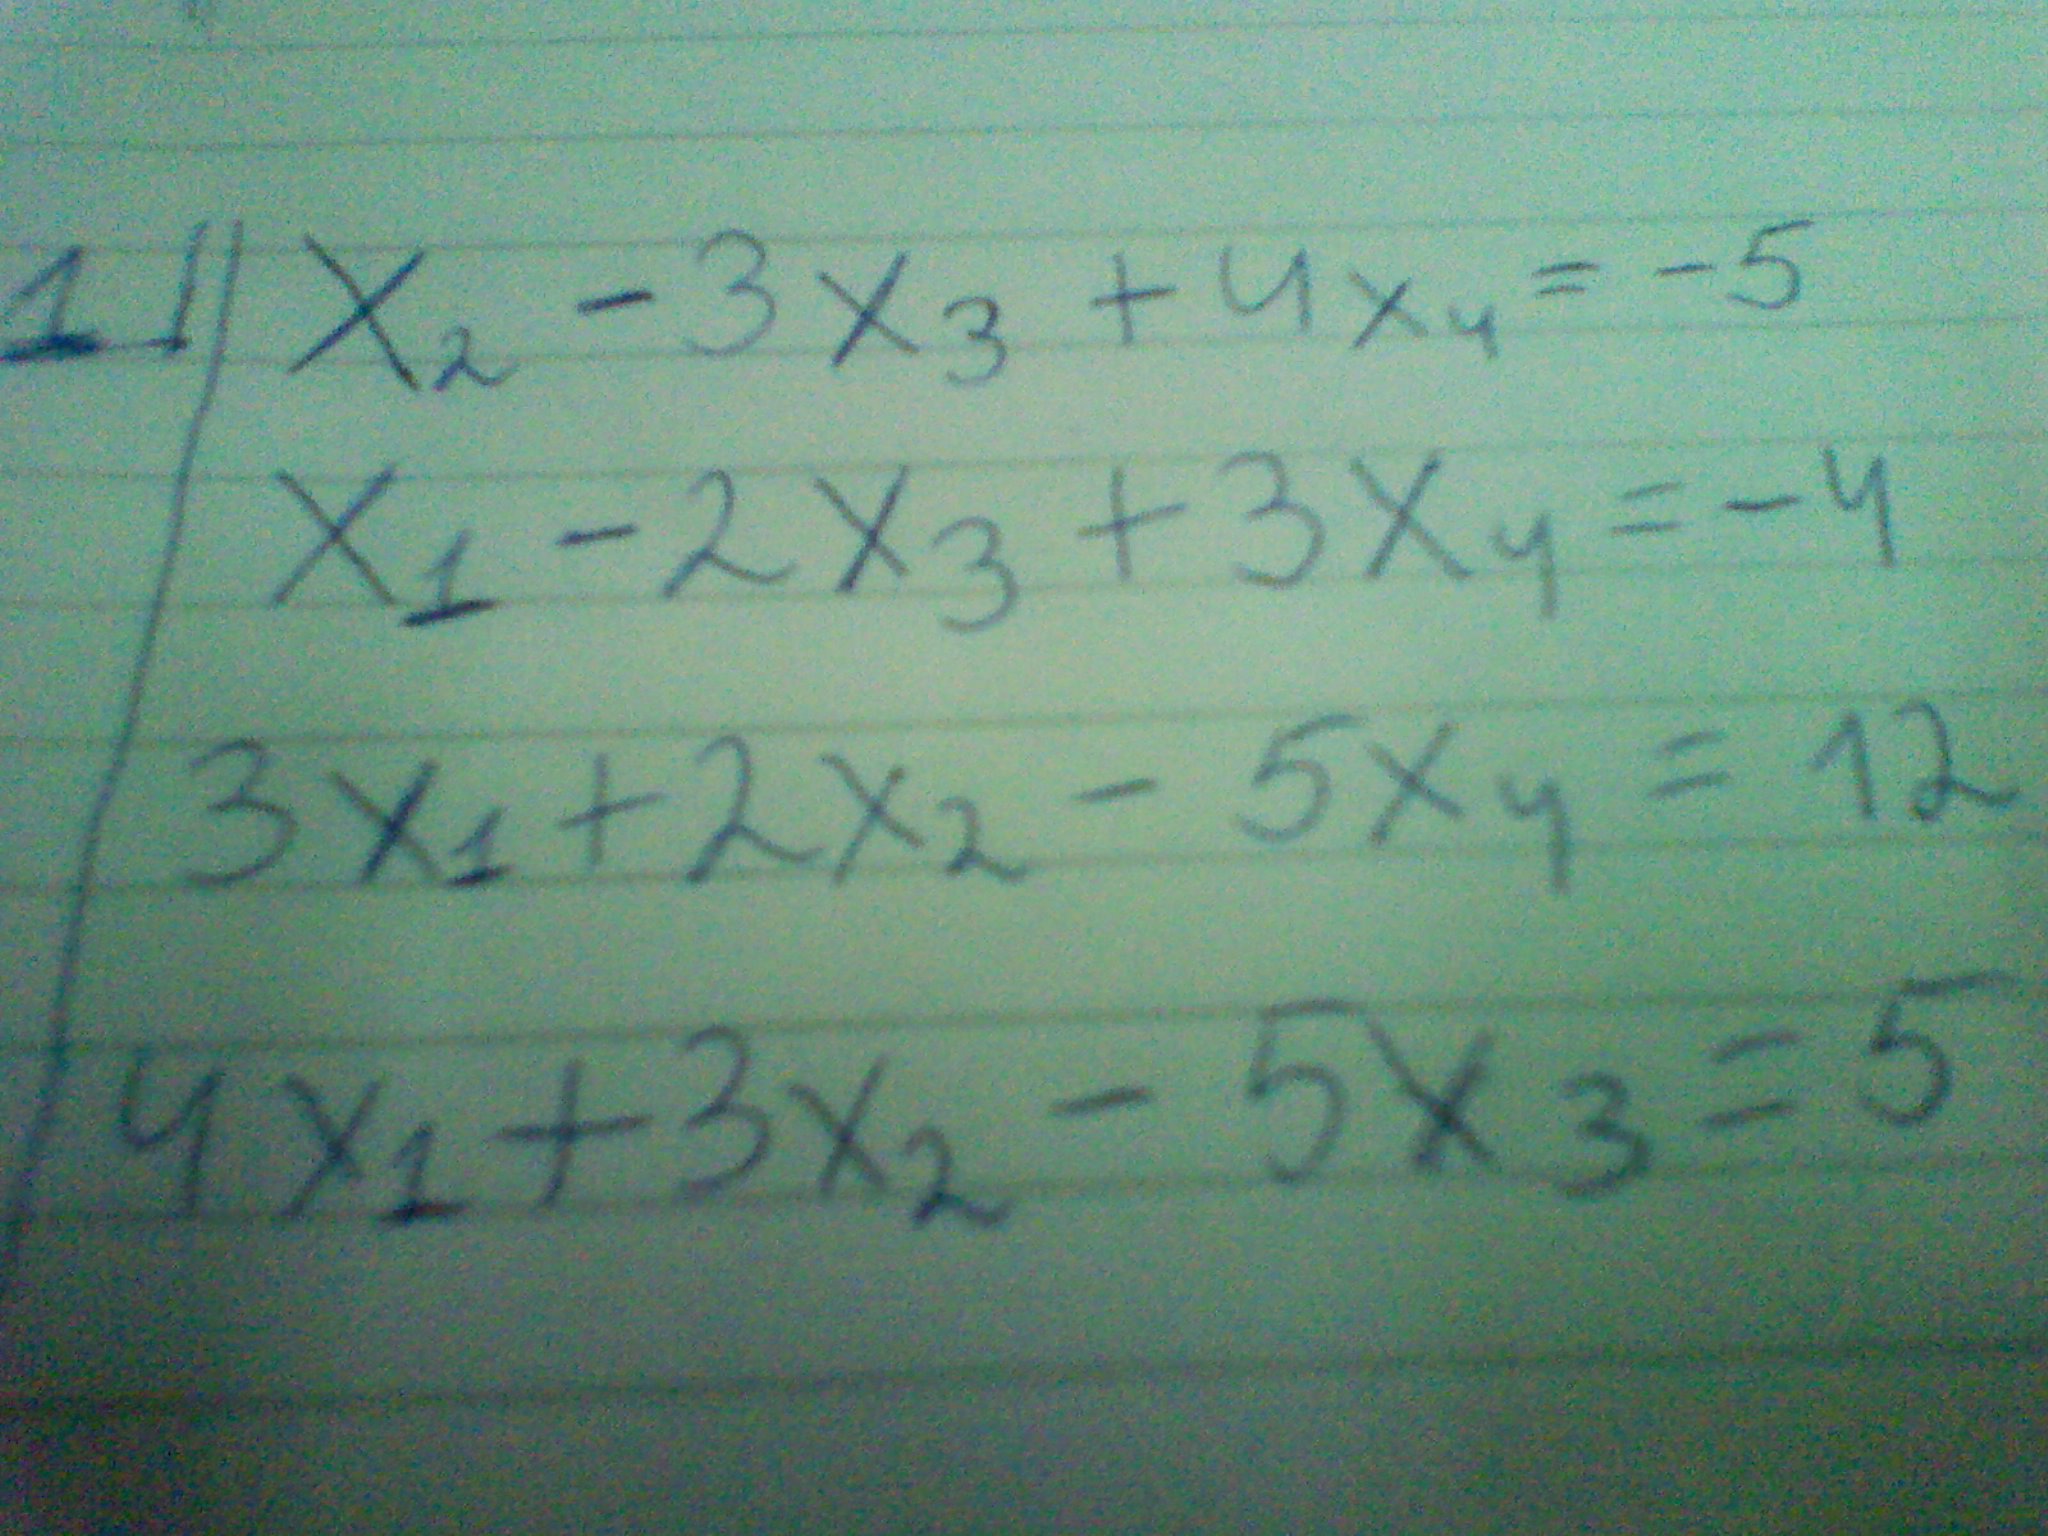 1] x₂ - 3x₃ + 4x₄ = -5
x₁ - 2x₃ + 3x₄ = -4
3x₁ + 2x₂ - 5x₄ = 12
4x₁ + 3x₂ - 5x₃ = 5